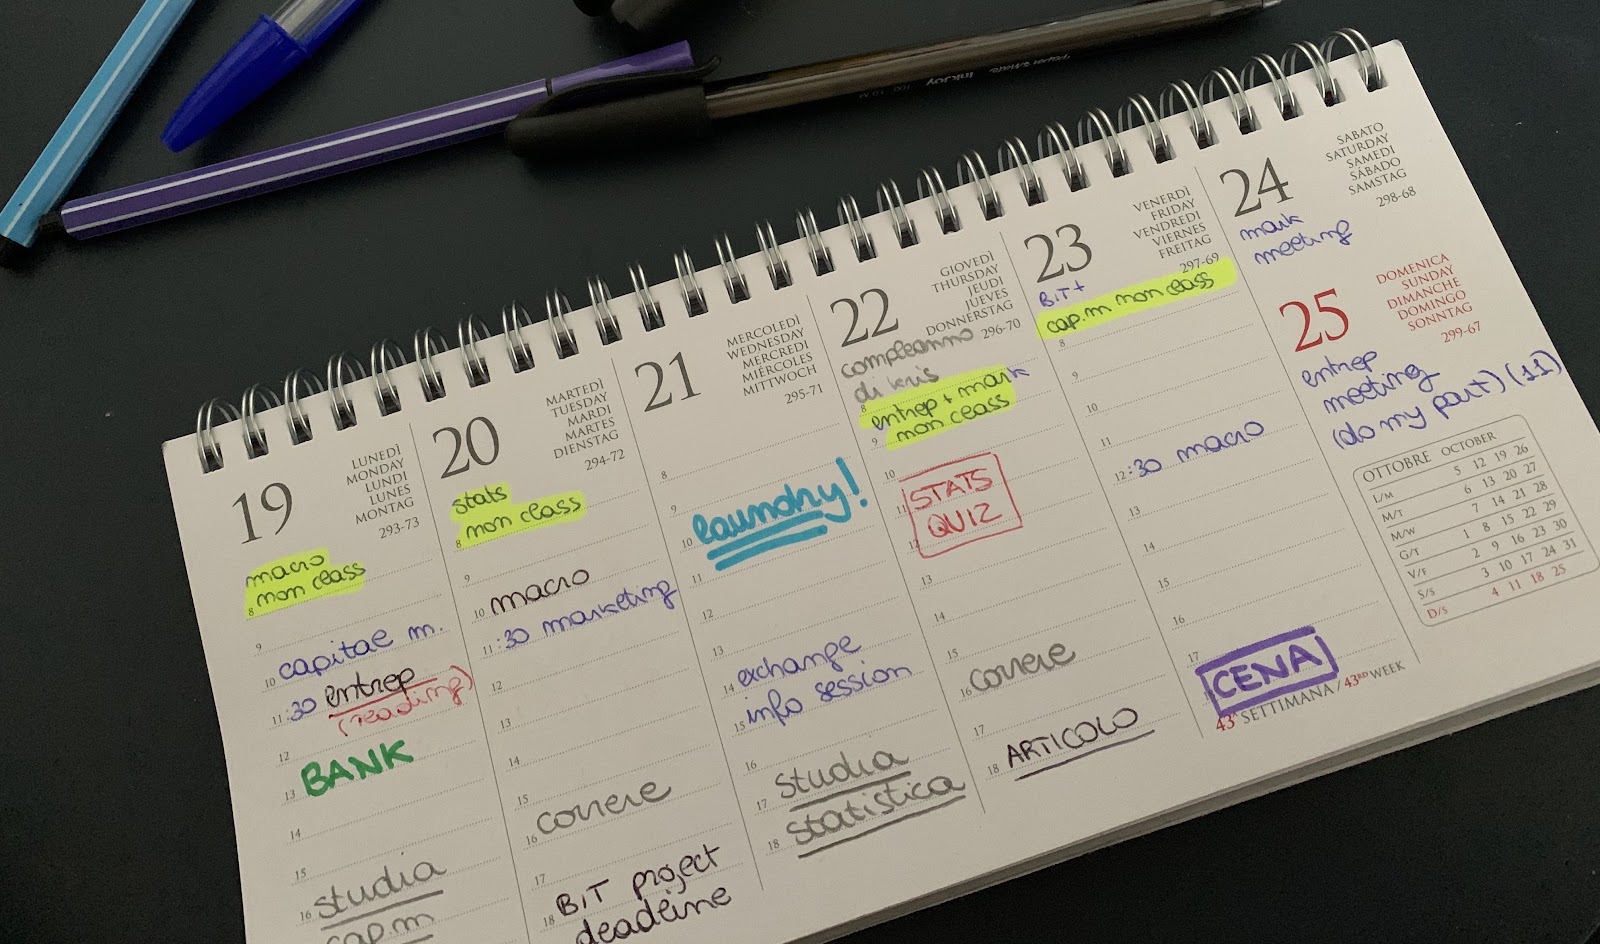 Paper Mate InkJoy 100 1.0 M
19
LUNEDÌ
MONDAY
LUNDI
LUNES
MONTAG
293-73
macro
non class
8
9
capital m.
10
11:30 entrep
(reading)
12
BANK
13
14
15
studia
16
cap.m
20
MARTEDÌ
TUESDAY
MARDI
MARTES
DIENSTAG
294-72
stats
non class
8
9
10 macro
11:30 marketing
12
13
14
15
correre
16
17
BIT project
18
deadline
21
MERCOLEDÌ
WEDNESDAY
MERCREDI
MIÉRCOLES
MITTWOCH
295-71
8
9
laundry!
10
11
12
13
exchange
14
info session
15
16
studia
17
statistica
18
22
GIOVEDÌ
THURSDAY
JEUDI
JUEVES
DONNERSTAG
296-70
compleanno
di kris
8
entrep + mark
non class
9
10
STATS
11
QUIZ
12
13
14
15
correre
16
17
ARTICOLO
18
23
VENERDÌ
FRIDAY
VENDREDI
VIERNES
FREITAG
297-69
BIT +
cap.m non class
8
9
10
11
12:30 macro
13
14
15
16
17
CENA
24
SABATO
SATURDAY
SAMEDI
SÁBADO
SAMSTAG
298-68
mark
meeting
25
DOMENICA
SUNDAY
DIMANCHE
DOMINGO
SONNTAG
299-67
entrep
meeting
(do my part) (11)
OTTOBRE OCTOBER
L/M 5 12 19 26
M/T 6 13 20 27
M/W 7 14 21 28
G/T 1 8 15 22 29
V/F 2 9 16 23 30
S/S 3 10 17 24 31
D/S 4 11 18 25
43ª SETTIMANA / 43RD WEEK